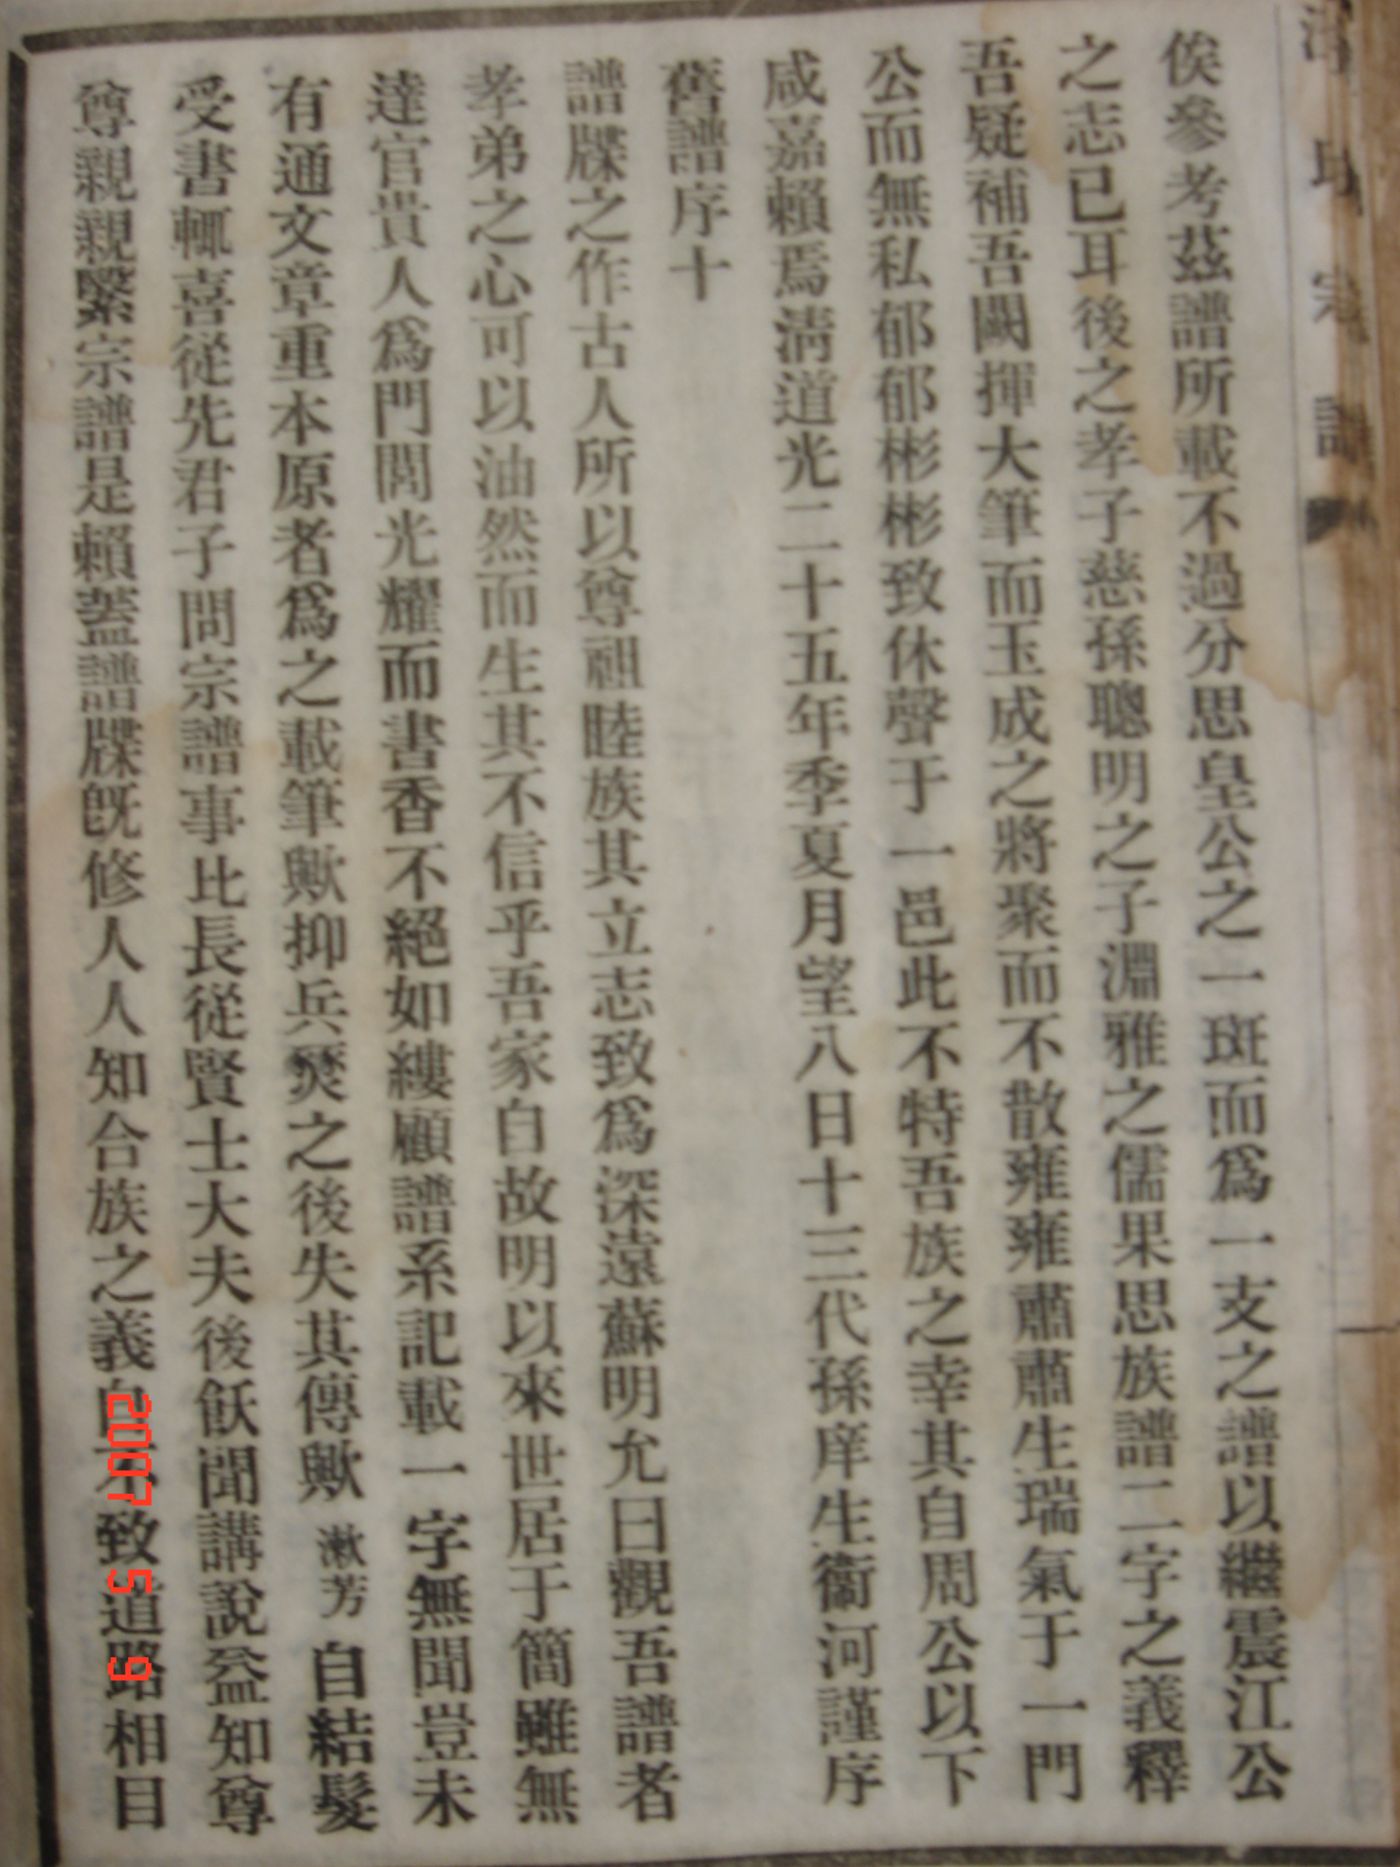 俟參考茲譜所載不過分思皇公之一斑而爲一支之譜以繼震江公
之志已耳後之孝子慈孫聰明之子淵雅之儒果思族譜二字之義釋
吾疑補吾闕揮大筆而玉成之將聚而不散雍雍肅肅生瑞氣于一門
公而無私郁郁彬彬致休聲于一邑此不特吾族之幸其自周公以下
咸嘉賴焉淸道光二十五年季夏月望八日十三代孫庠生衞河謹序
舊譜序十
譜牒之作古人所以尊祖睦族其立志致爲深遠蘇明允曰觀吾譜者
孝弟之心可以油然而生其不信乎吾家自故明以來世居于簡雖無
達官貴人爲門閭光耀而書香不絕如縷顧譜系記載一字無聞豈未
有通文章重本原者爲之載筆歟抑兵燹之後失其傳歟漱芳自結髮
受書輒喜從先君子問宗譜事比長從賢士大夫後飫聞講說益知尊
尊親親繫宗譜是賴蓋譜牒旣修人人知合族之義自不致道路相目
2007 5 9